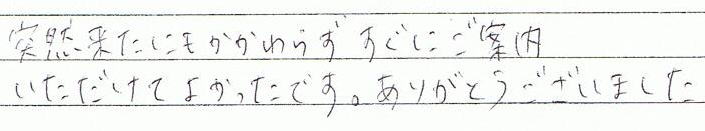 突然来たにもかかわらず すぐにご案内
いただけてよかったです。ありがとうございました